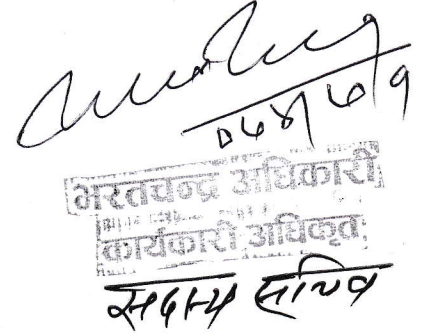 ०७४/७/१
भरतचन्द्र अधिकारी
कार्यकारी अधिकृत
सदस्य सचिव